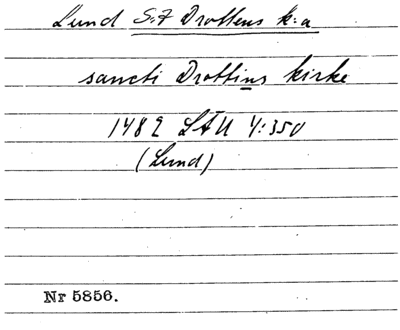 Lund S:t Drottens k:a
sancti Drottins kirke
1482 LÄU 4:350
(Lund)
Nr 5856.